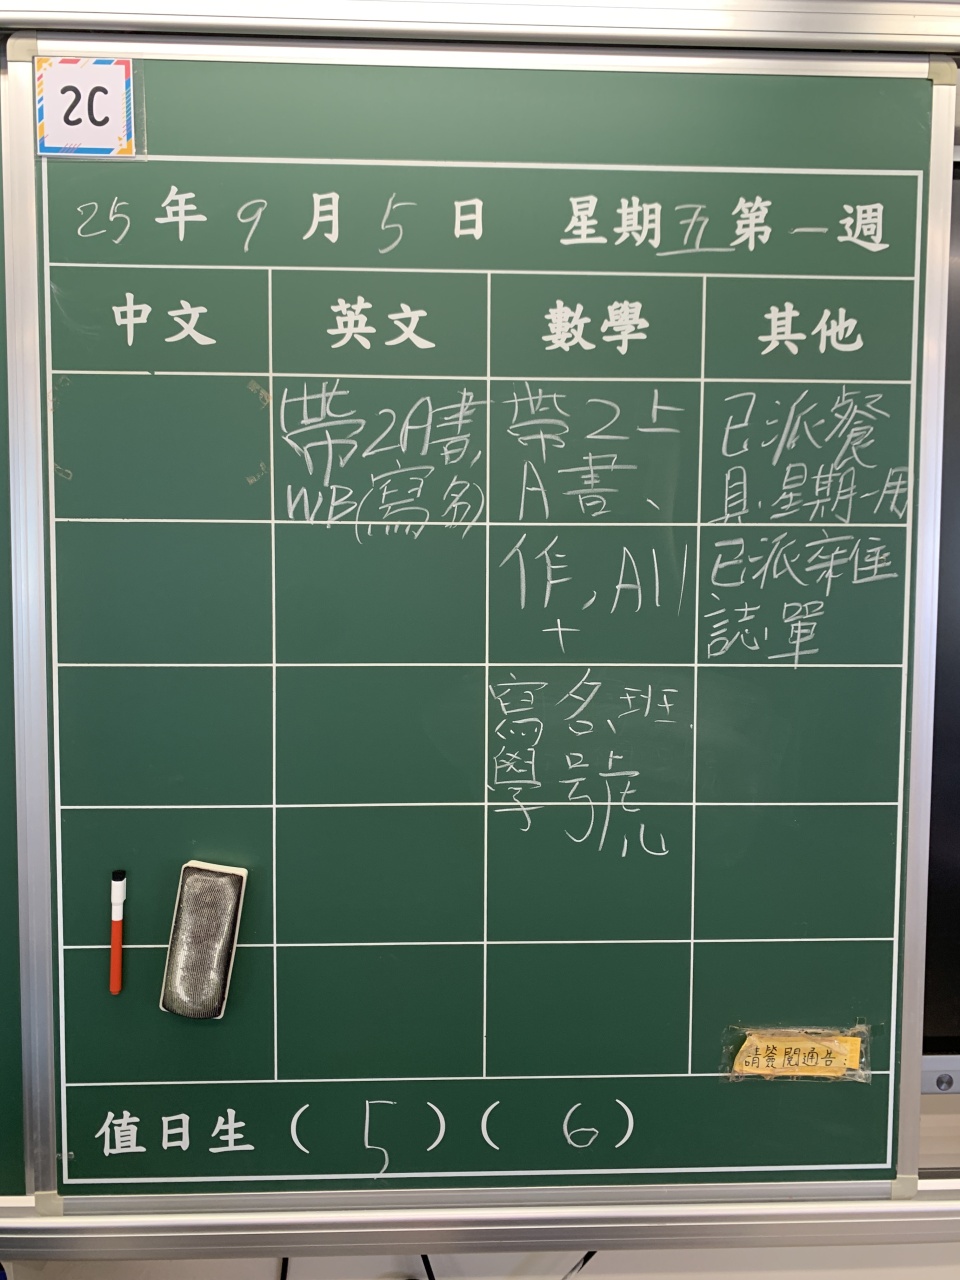 2C
25年9月5日 星期五第一週
中文 英文 數學 其他
帶2A書,
WB(寫名)
帶2上
A書、
作,A11
+
寫名、班、
學號
已派餐
具.星期一用
已派雜
誌單
請簽閱通告:
值日生(5)(6)